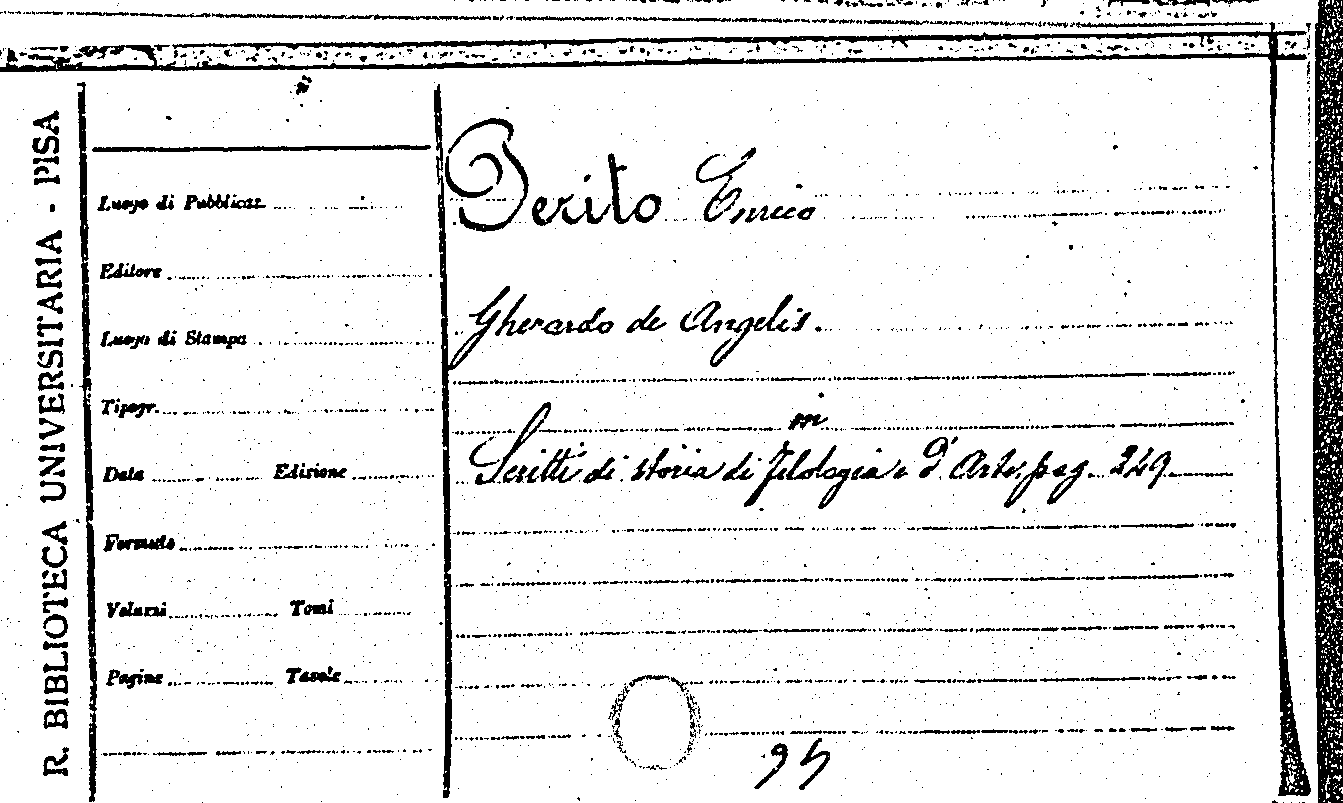 R. BIBLIOTECA UNIVERSITARIA - PISA
Luogo di Pubblicaz.
Editore
Luogo di Stampa
Tipogr.
Data Edizione
Formato
Volumi Tomi
Pagine Tavole
Perito Enrico
Gherardo de Angelis.
in
Scritti di storia di filologia e d'Arte, pag. 249